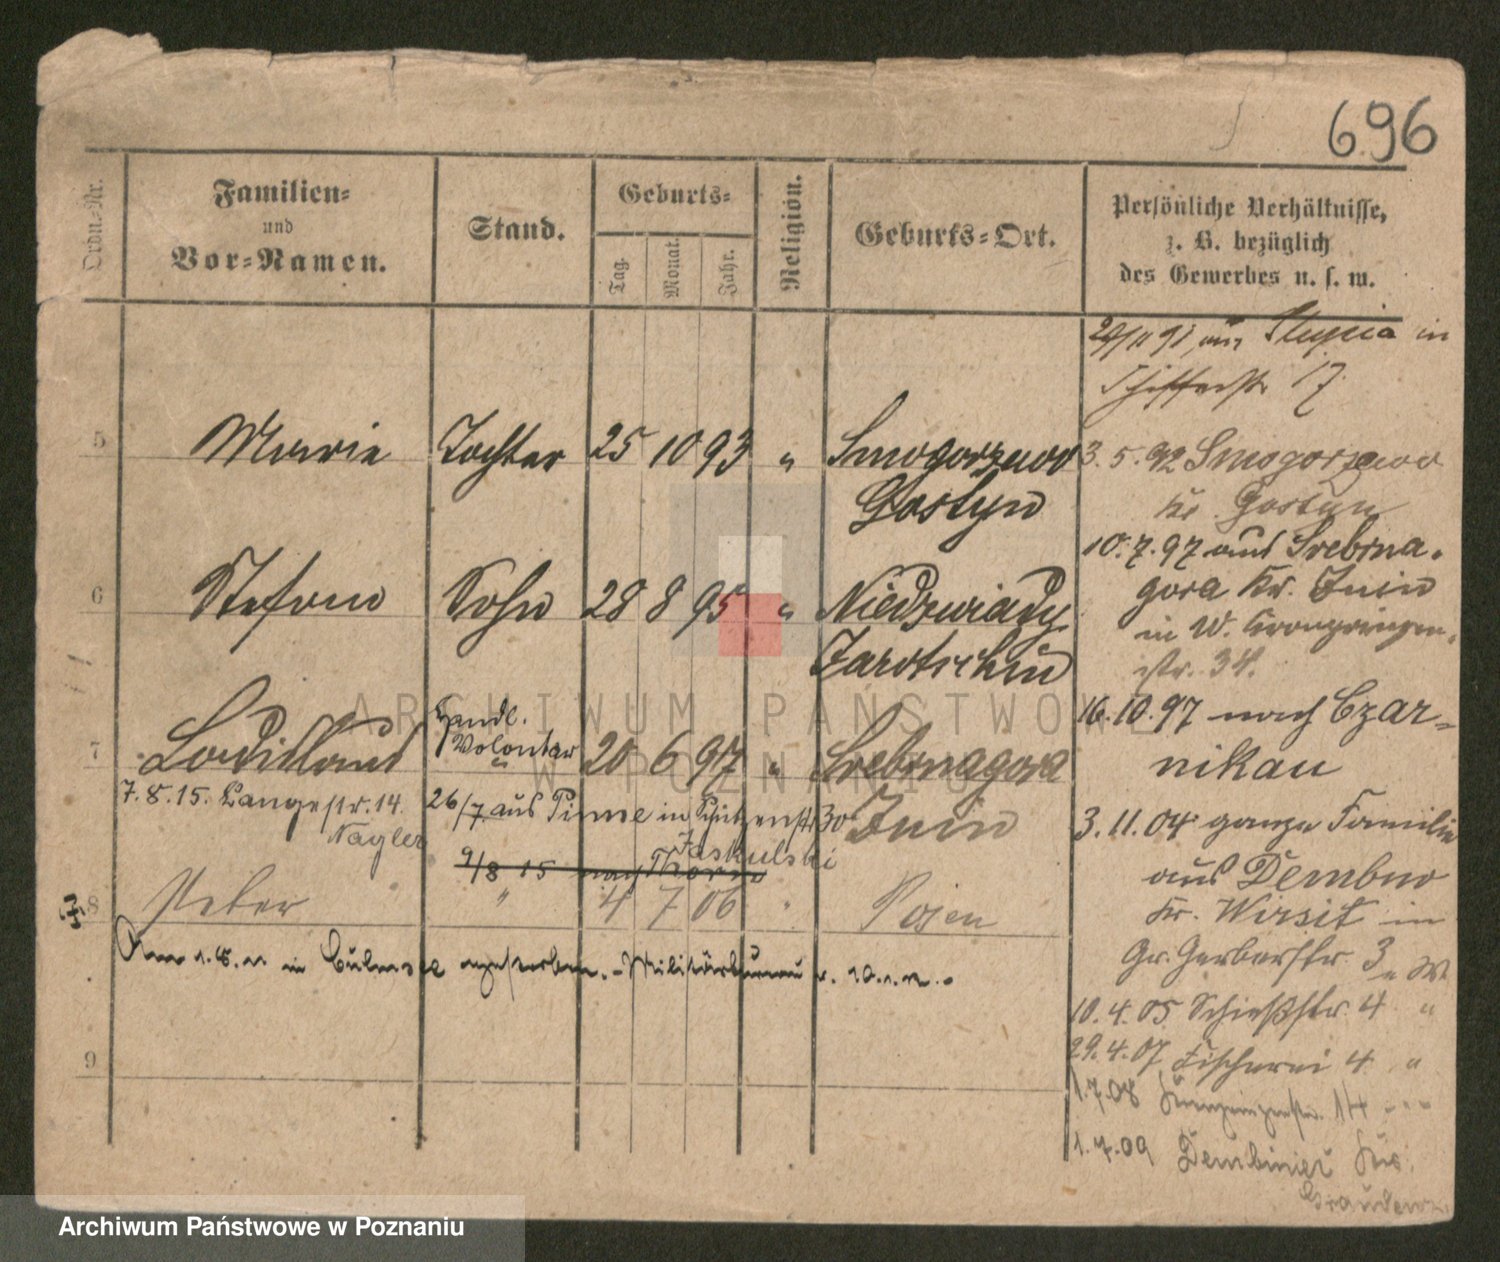 696
Ordn.-Nr.
Familien-
und
Vor-Namen.
Stand.
Geburts-
Tag.
Monat.
Jahr.
Religion.
Geburts-Ort.
Persönliche Verhältnisse,
z. B. bezüglich
des Gewerbes u. s. w.
91 aus Slupia in
Schifferstr 17
5 Marie Tochter 25 10 93 " Smogorzewo
Gostyn
3.5.92 Smogorzewo
Kr. Gostyn
10.7.97 aus Srebrna-
gora Kr. Znin
in W. Kronprinzen-
str. 34.
6 Stefan Sohn 28 8 95 " Niedzwiady
Jarotschin
16.10.97 nach Czar-
nikau
7 Ladislaus Handl.
Volontär 20 6 97 " Srebrnagora
Znin
7.8.15. Langestr. 14.
Nagler
26/7. aus Pinne in Schützenstr 30
Jaskulski
9/8 15 nach Thorn
3.11.04 ganze Familie
aus Dembno
Kr. Wirsitz in
Gr. Gerberstr. 3
8 Peter " 4 7 06 " Posen
Am in Culmsee
10.4.05 Schießstr. 4 "
29.4.07 Fischerei 4 "
9
1.7.08 Kronprinzenstr. 14
1.7.09 Dembiniec Kr.
Graudenz
ARCHIWUM PAŃSTWOWE
W POZNANIU
Archiwum Państwowe w Poznaniu